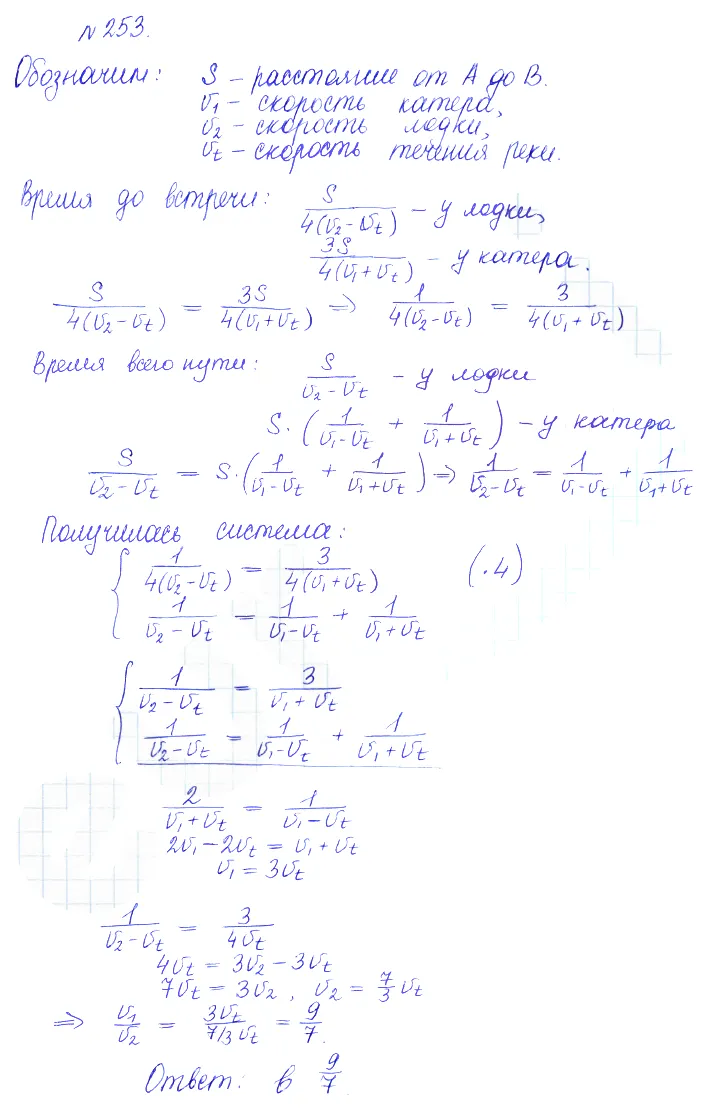 №253.
Обозначим: S – расстояние от А до В.
v₁ – скорость катера,
v₂ – скорость лодки,
v_t – скорость течения реки.
Время до встречи: S/(4(v₂ – v_t)) – у лодки,
3S/(4(v₁ + v_t)) – у катера.
S/(4(v₂ – v_t)) = 3S/(4(v₁ + v_t)) ⇒ 1/(4(v₂ – v_t)) = 3/(4(v₁ + v_t))
Время всего пути: S/(v₂ – v_t) – у лодки
S·(1/(v₁ – v_t) + 1/(v₁ + v_t)) – у катера
S/(v₂ – v_t) = S·(1/(v₁ – v_t) + 1/(v₁ + v_t)) ⇒ 1/(v₂ – v_t) = 1/(v₁ – v_t) + 1/(v₁ + v_t)
Получилась система:
{ 1/(4(v₂ – v_t)) = 3/(4(v₁ + v_t)) (·4)
1/(v₂ – v_t) = 1/(v₁ – v_t) + 1/(v₁ + v_t)
{ 1/(v₂ – v_t) = 3/(v₁ + v_t)
1/(v₂ – v_t) = 1/(v₁ – v_t) + 1/(v₁ + v_t)
2/(v₁ + v_t) = 1/(v₁ – v_t)
2v₁ – 2v_t = v₁ + v_t
v₁ = 3v_t
1/(v₂ – v_t) = 3/(4v_t)
4v_t = 3v₂ – 3v_t
7v_t = 3v₂, v₂ = 7/3 v_t
⇒ v₁/v₂ = 3v_t/(7/3 v_t) = 9/7.
Ответ: в 9/7